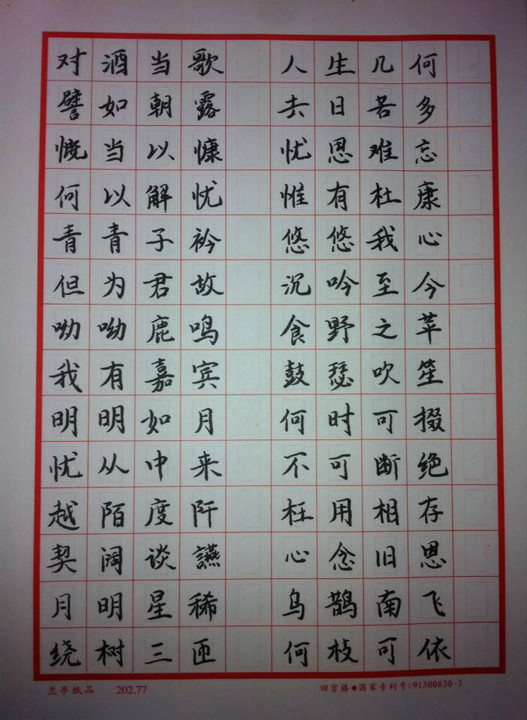 对酒当歌 人生几何
譬如朝露 去日苦多
慨当以慷 忧思难忘
何以解忧 惟有杜康
青青子衿 悠悠我心
但为君故 沉吟至今
呦呦鹿鸣 食野之苹
我有嘉宾 鼓瑟吹笙
明明如月 何时可掇
忧从中来 不可断绝
越陌度阡 枉用相存
契阔谈讌 心念旧恩
月明星稀 乌鹊南飞
绕树三匝 何枝可依
兰亭纸品 202.77 回宫格●国家专利号:91300830·3